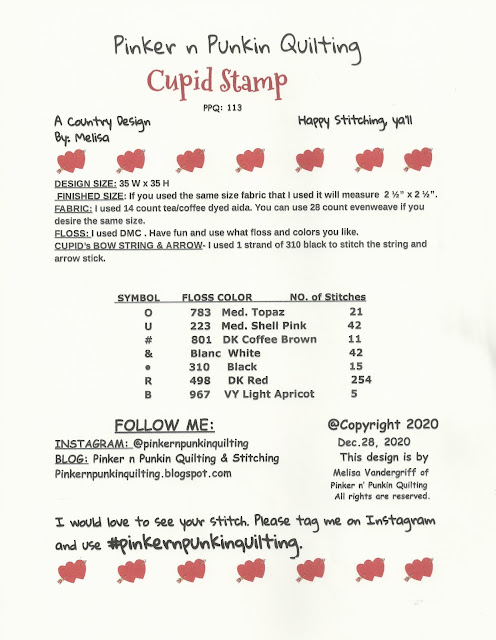 Pinker n Punkin Quilting
Cupid Stamp
PPQ: 113
A Country Design
By: Melisa
Happy Stitching, ya'll
DESIGN SIZE: 35 W x 35 H
FINISHED SIZE: If you used the same size fabric that I used it will measure 2 ½" x 2 ½".
FABRIC: I used 14 count tea/coffee dyed aida. You can use 28 count evenweave if you
desire the same size.
FLOSS: I used DMC . Have fun and use what floss and colors you like.
CUPID's BOW STRING & ARROW- I used 1 strand of 310 black to stitch the string and
arrow stick.
SYMBOL FLOSS COLOR NO. of Stitches
O 783 Med. Topaz 21
U 223 Med. Shell Pink 42
# 801 DK Coffee Brown 11
& Blanc White 42
● 310 Black 15
R 498 DK Red 254
B 967 VY Light Apricot 5
FOLLOW ME:
INSTAGRAM: @pinkernpunkinquilting
BLOG: Pinker n Punkin Quilting & Stitching
Pinkernpunkinquilting.blogspot.com
@Copyright 2020
Dec.28, 2020
This design is by
Melisa Vandergriff of
Pinker n' Punkin Quilting
All rights are reserved.
I would love to see your stitch. Please tag me on Instagram
and use #pinkernpunkinquilting.